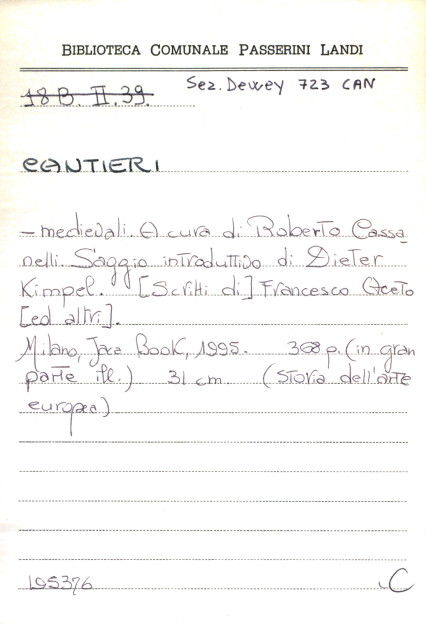 BIBLIOTECA COMUNALE PASSERINI LANDI
18 B. II. 39. Sez. Dewey 723 CAN
CANTIERI
– medievali. A cura di Roberto Cassa
nelli. Saggio introduttivo di Dieter
Kimpel. [Scritti di] Francesco Aceto
[ed altri].
Milano, Jaca Book, 1995. 368 p. (in gran
parte ill.) 31 cm (Storia dell'arte
europea)
195376 C